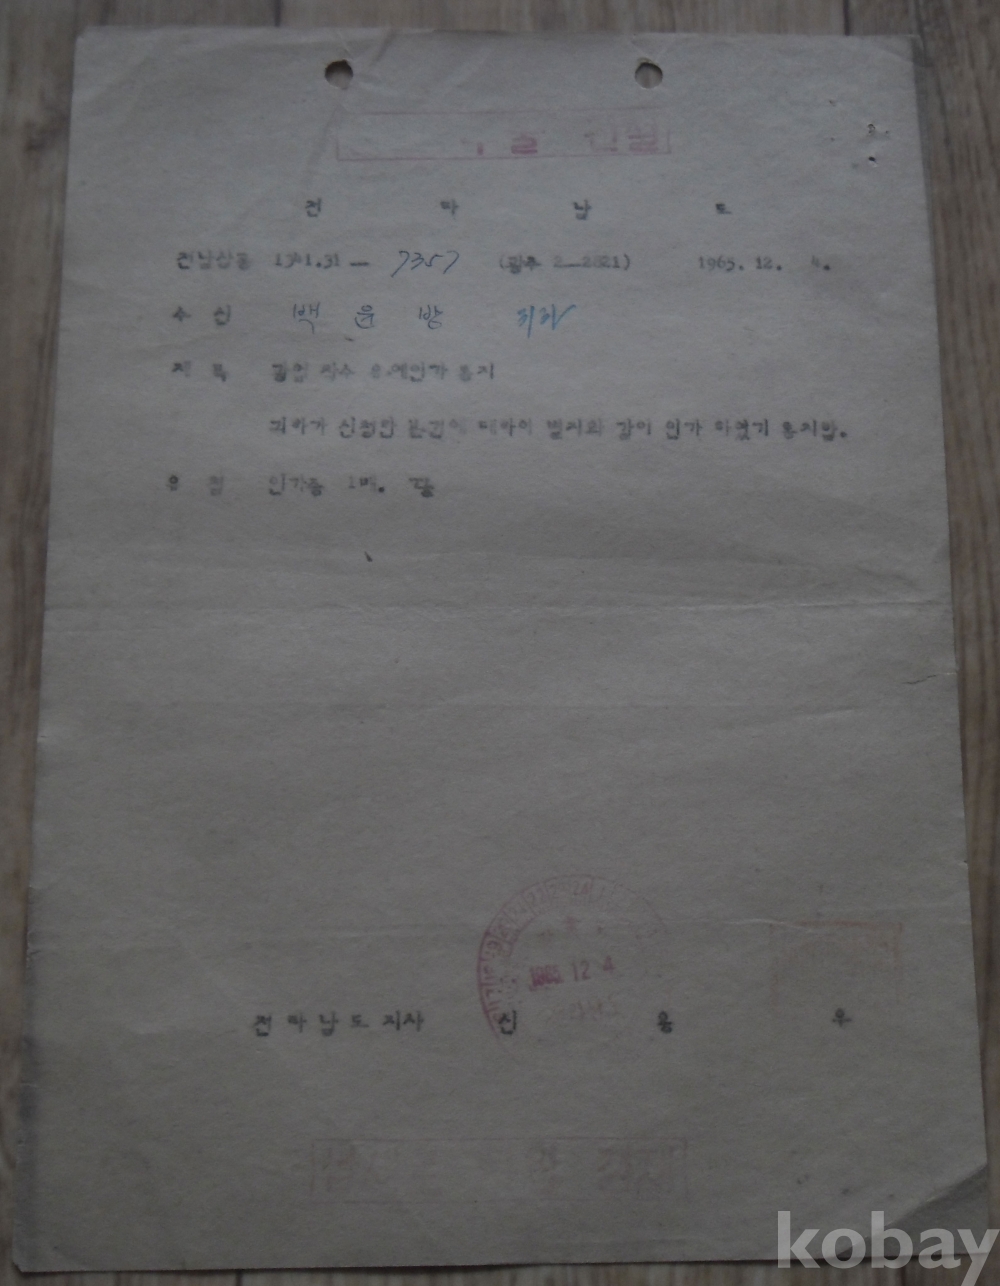 전 라 남 도
전남산 1341.31 — 7357 (광주 2—2821) 1965. 12. 4.
수 신 백 운 방 귀하
제 목 광업 착수 유예인가 통지
귀하가 신청한 분건에 대하여 별지와 같이 인가 하였기 통지함.
유 첨 인가증 1매. 끝
12 4
전라남도지사 신 용 우
kobay